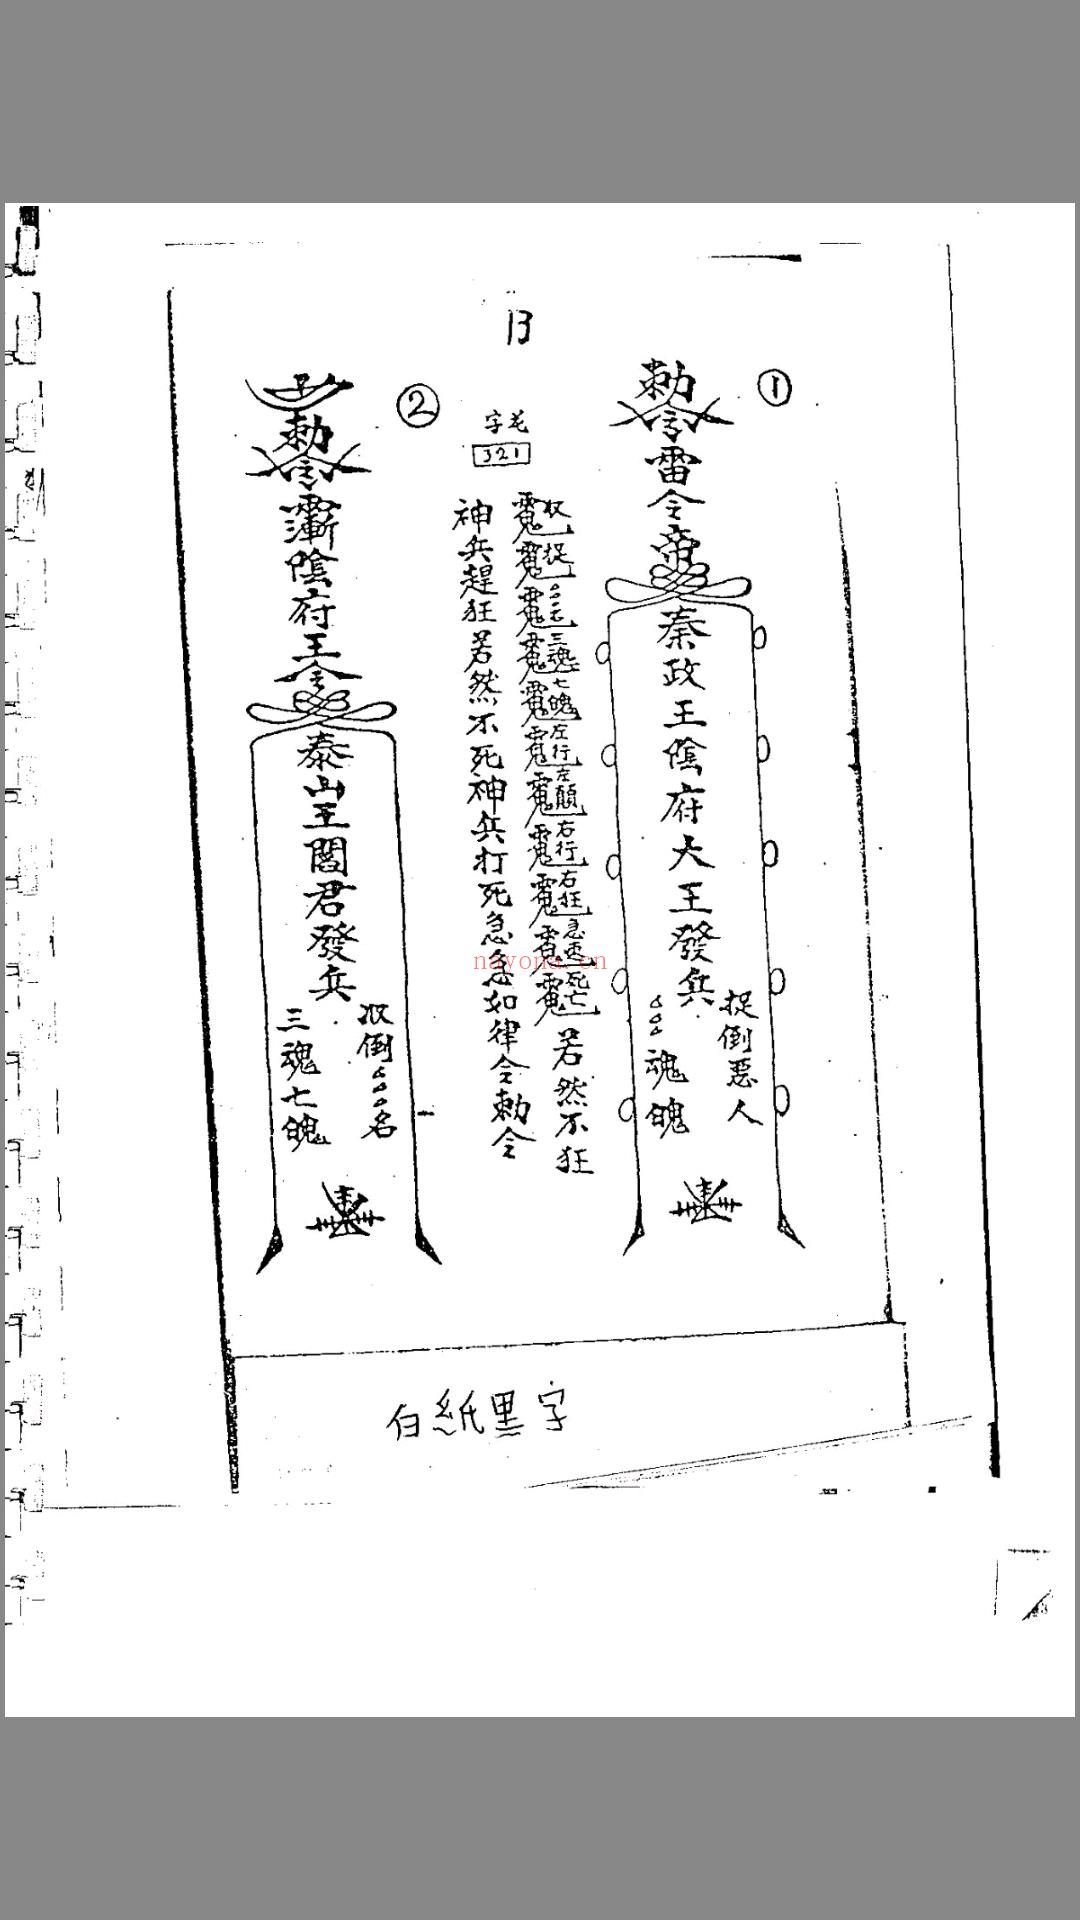 13
①
勅令雷令帝
秦政王陰府大王發兵
捉倒惡人
魂魄
字花
321
收捉
三魂七魄左行左顛右行右狂急速死亡
若然不狂
神兵趕狂若然不死神兵打死急急如律令勅令
②
勅令
陰府王令
泰山王閻君發兵
收倒
名
三魂七魄
白紙黑字
nayona.cn